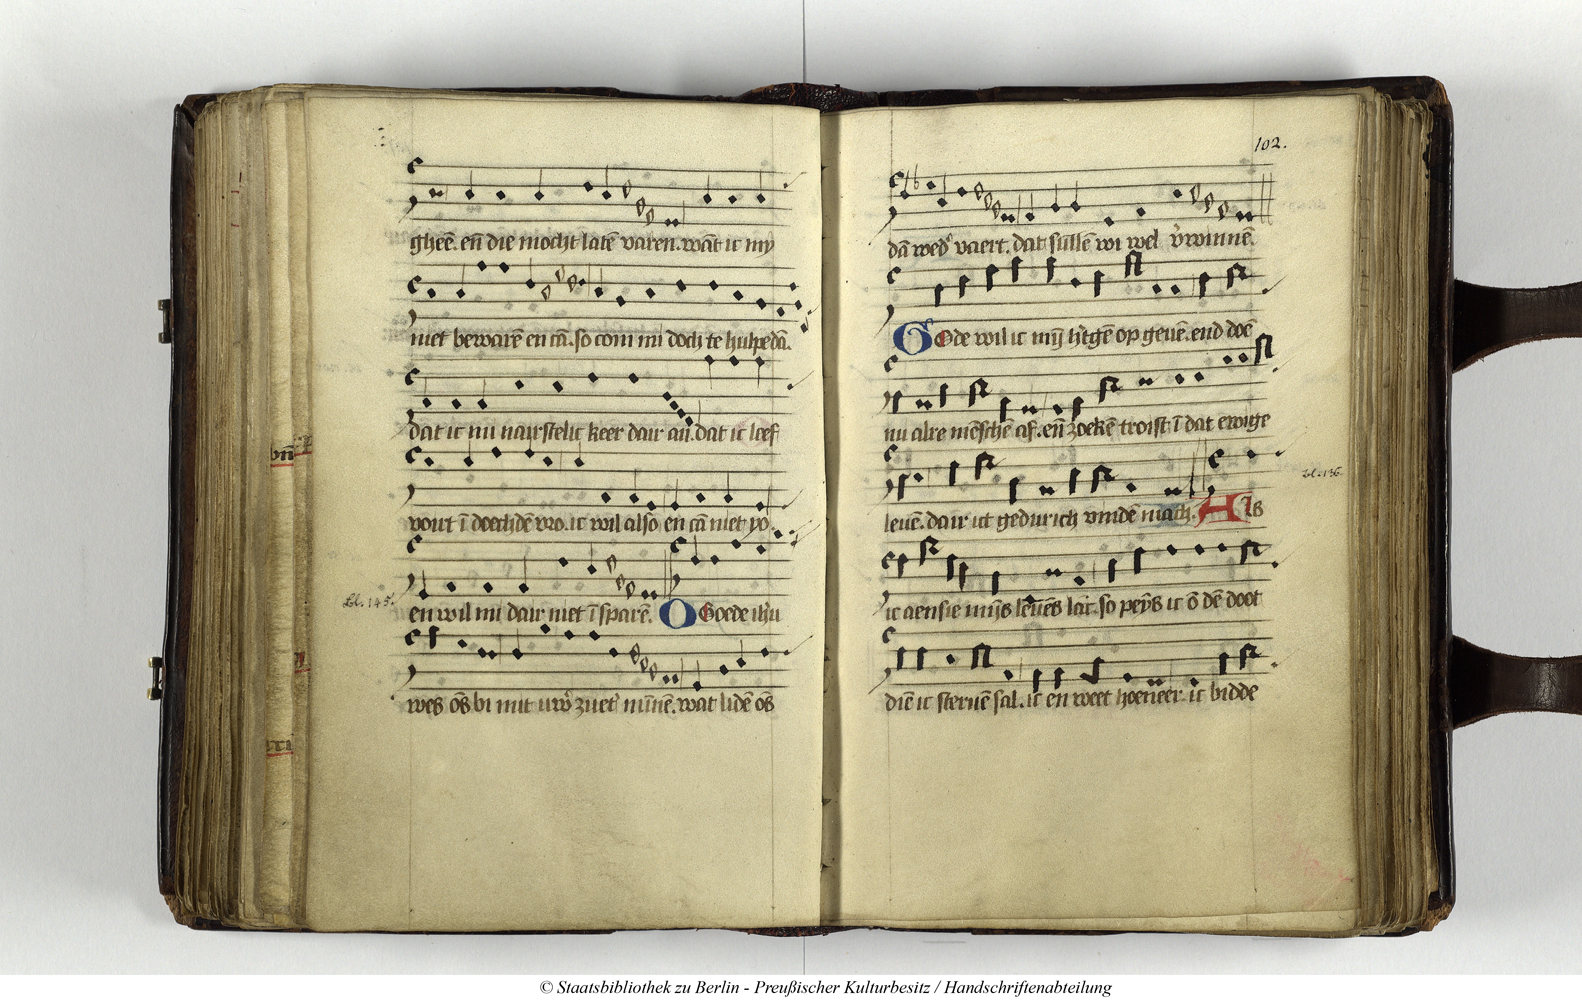 gheē. en̄ die mocht latē varen. wāt ic my
niet bewarē en cā. so com mi doch te hulpe dā.
dat ic mi naerstelic keer dair an. dat ic leef
vout ī doechdē vro. ic wil also en cā niet yo.
Bl. 145.
en wil mi dair niet ī sparē. O Goede ihū
wes ōs bi mit uwer zueter mīnē. wat lidē ōs
102.
dā weder vaert. dat sullē wi wel verwinnē.
Gode wil ic mȳ hertgē op gevē. end doē
mi alre mēschē af. en̄ zoekē troist ī dat ewige
Bl. 136.
levē. dair ict gedurich vindē mach. Als
ic aensie mijs levēs lait. so peys ic ō dē doot
diē ic stervē sal. ic en weet hoeneer. ic bidde
© Staatsbibliothek zu Berlin - Preußischer Kulturbesitz / Handschriftenabteilung